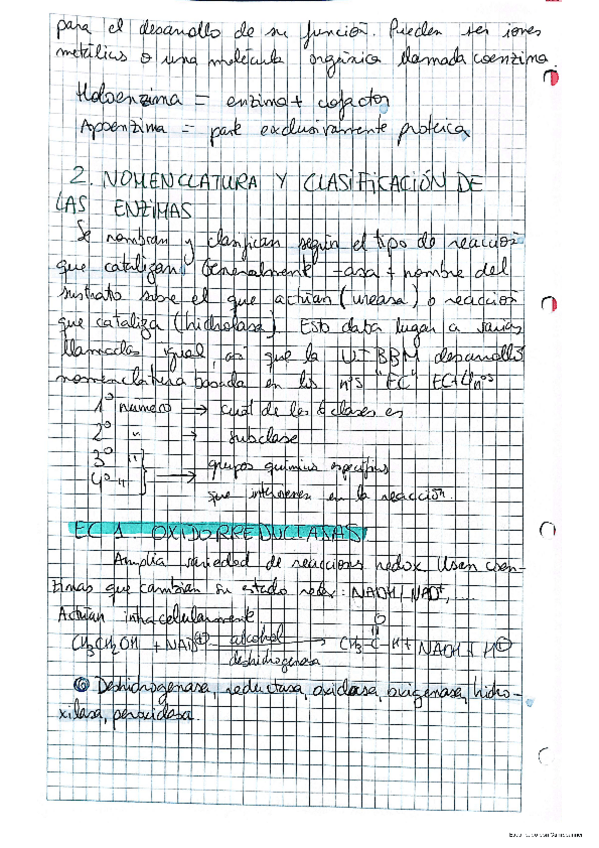 para el desarrollo de su función. Pueden ser iones
metálicos o una molécula orgánica llamada coenzima.
Holoenzima = enzima + cofactor
Apoenzima = parte exclusivamente proteica
2. NOMENCLATURA Y CLASIFICACIÓN DE
LAS ENZIMAS
Se nombran y clasifican según el tipo de reacción
que catalizan. Generalmente -asa + nombre del
sustrato sobre el que actúan (ureasa) o reacción
que cataliza (hidrolasa). Esto daba lugar a varias
llamadas igual, así que la UIBBM desarrolló
nomenclatura basada en los nos "EC" EC+4nos
1º número → cuál de las 6 clases es
2º " → subclase
3º "
4º " → grupos químicos específicos
que intervienen en la reacción.
EC 1 OXIDORREDUCTASAS
Amplia variedad de reacciones redox. Usan coen-
zimas que cambian su estado redox: NADH/NAD+, ...
Actúan intracelularmente
O
CH3CH2OH + NAD+ alcohol → CH3-C-H + NADH + H+
deshidrogenasa
Deshidrogenasa, reductasa, oxidasa, oxigenasa, hidro-
xilasa, peroxidasa.